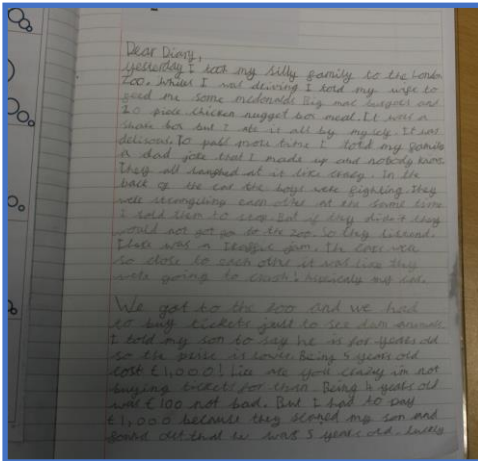 Dear Diary,
yesterday I took my silly family to the London
Zoo. Whilst I was driving I told my wife to
feed me some mcdonalds Big mac burgers and
20 piece chicken nugget box meal. It was a
share box but I ate it all by myself. It was
delicous. To pass more time I told my family
a dad joke that I made up and nobody knows.
They all laughed at it like crazy. In the
back of the car the boys were fighting. They
well strangiling each other at the same time
I told them to stop. But if they didn't they
would not get go to the zoo. So they listend.
There was a traffic jam. The cars were
so close to each other it was like they
were going to crash! my
We got to the zoo and we had
to buy tickets just to see dum animals.
I told my son to say he is for years old
so the price is lower. Being 5 years old
cost £1,000! Like are you crazy im not
buying tickets for than. Being 4 years old
was £100 not bad. But I had to pay
£1,000 because they scaned my son and
found out that he was 5 years old. luckly